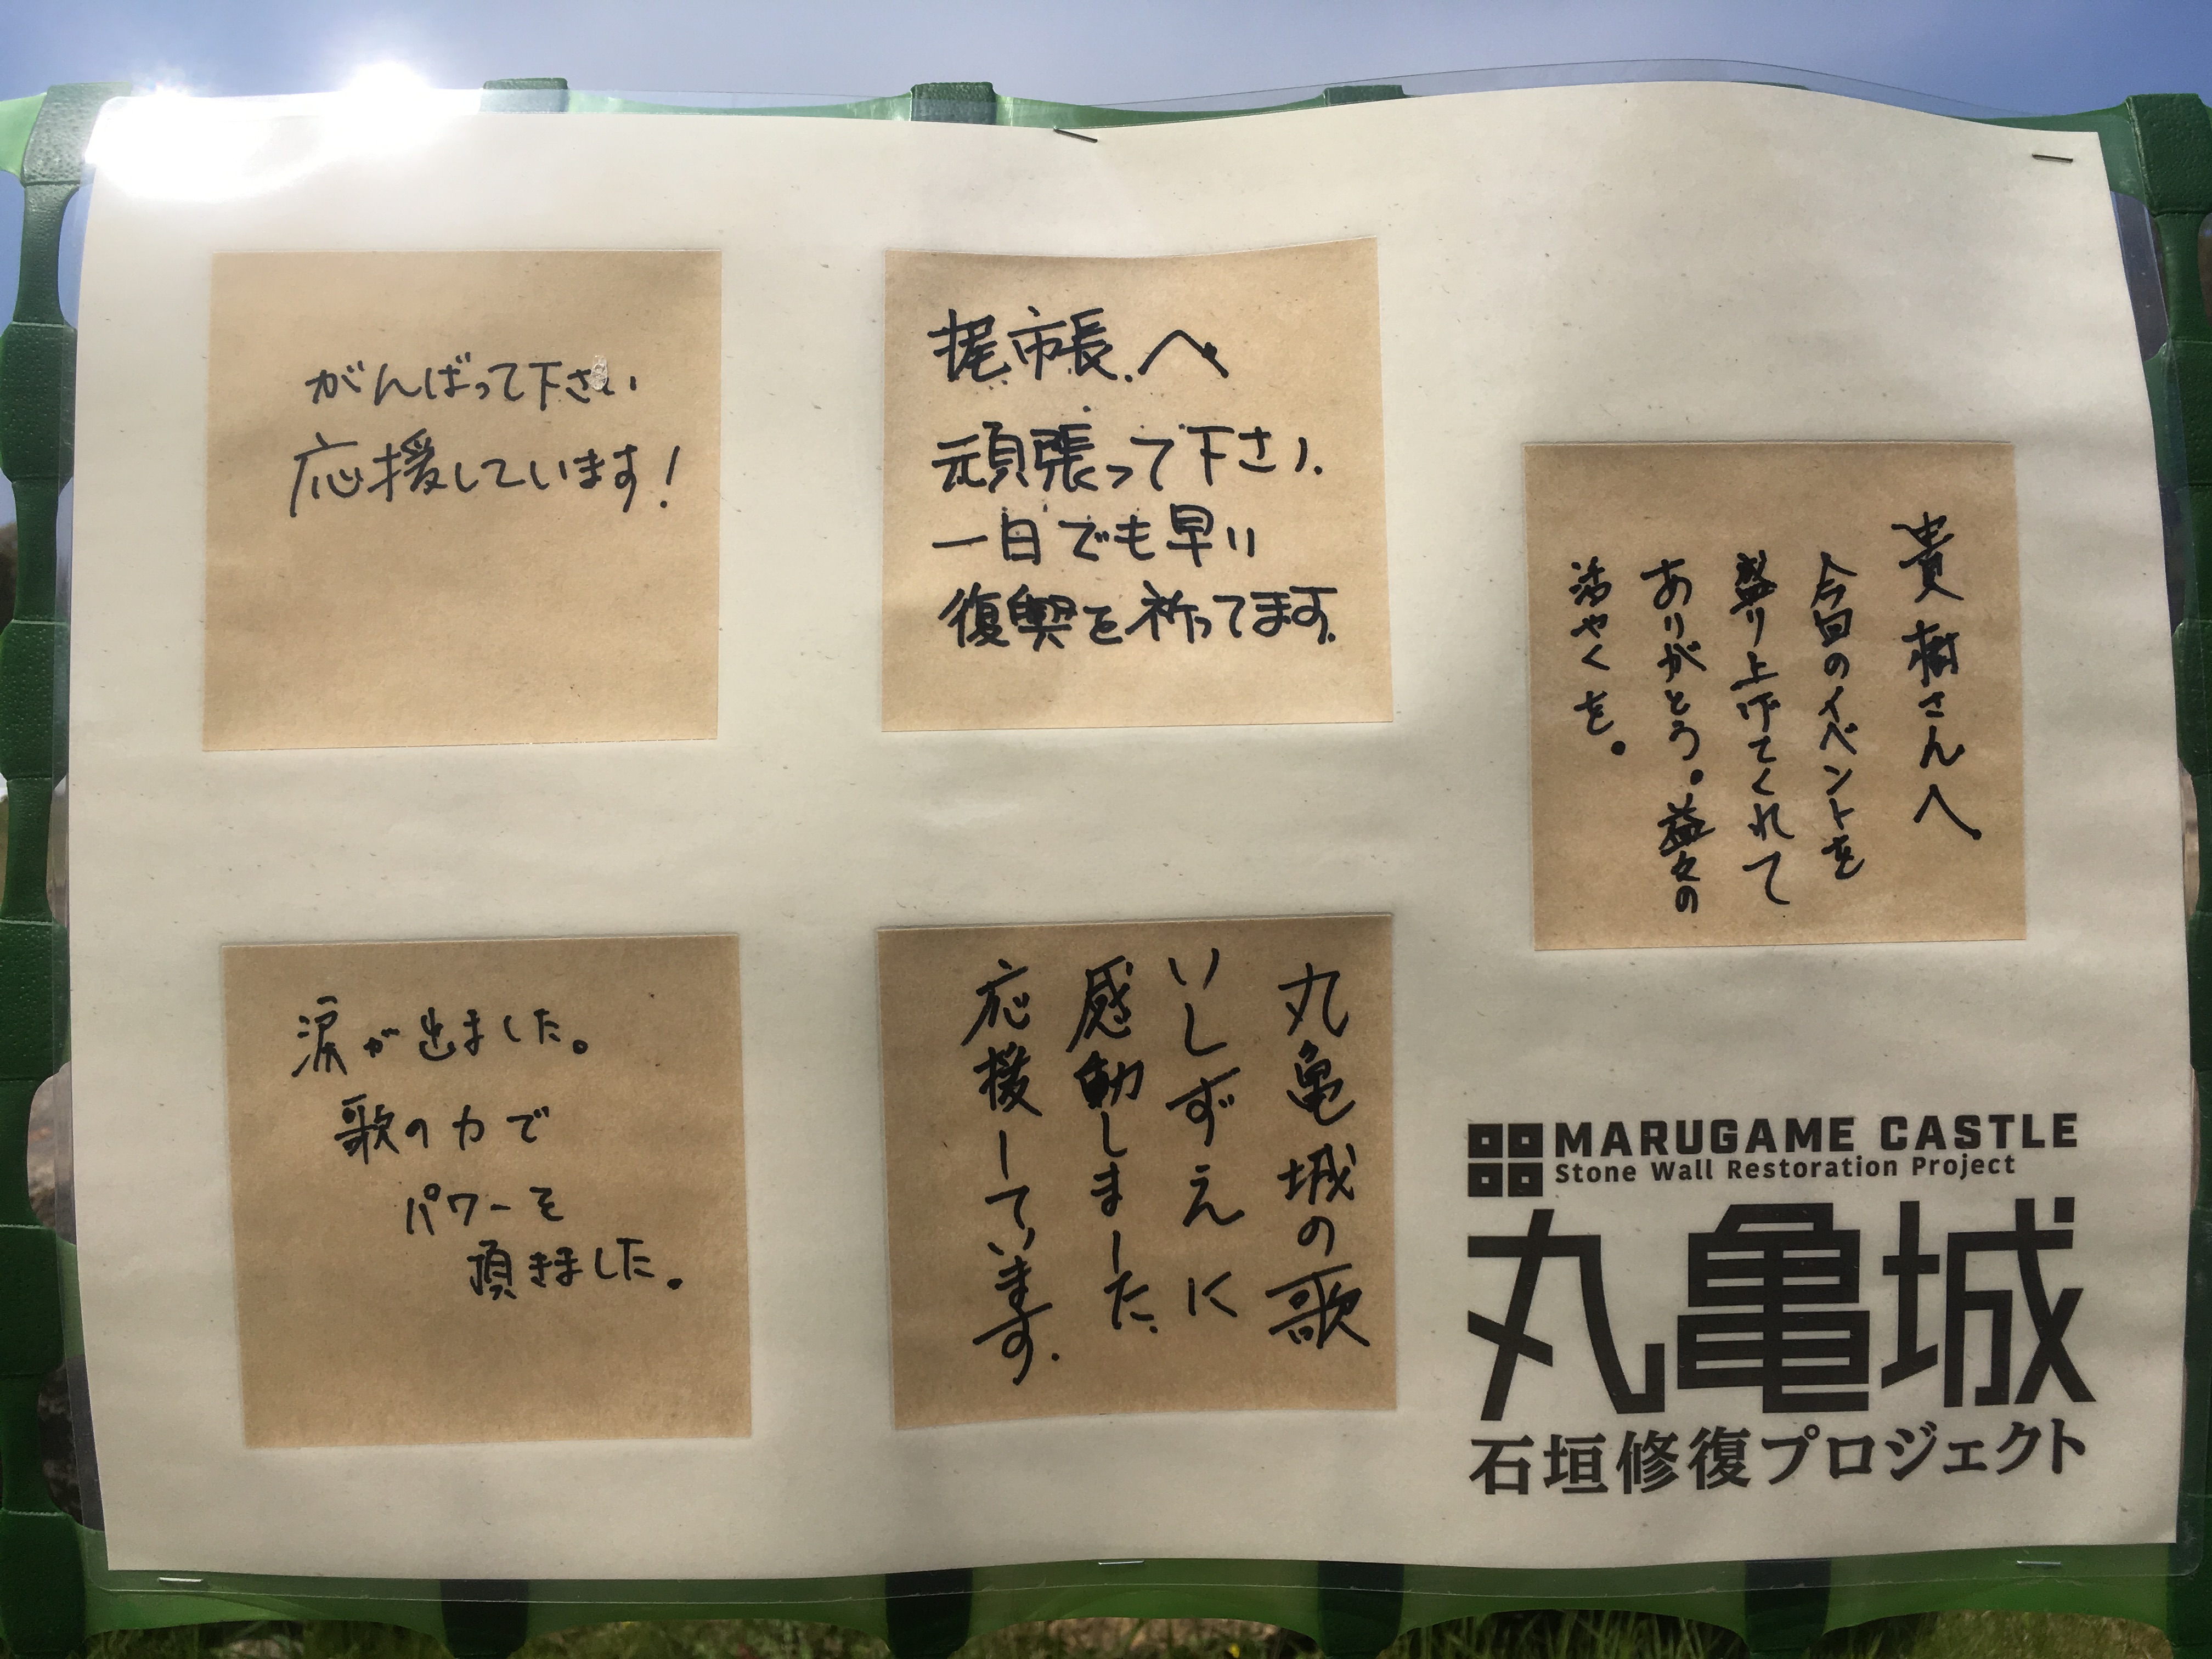 がんばって下さい
応援しています!
梶市長へ
頑張って下さい
一日でも早い
復興を祈ってます
貴樹さんへ
今回のイベントを
盛り上げてくれて
ありがとう。益々の
活やくを。
涙が出ました。
歌の力で
パワーを
頂きました。
丸亀城の歌
いしずえに
感動しました
応援しています
MARUGAME CASTLE
Stone Wall Restoration Project
丸亀城
石垣修復プロジェクト